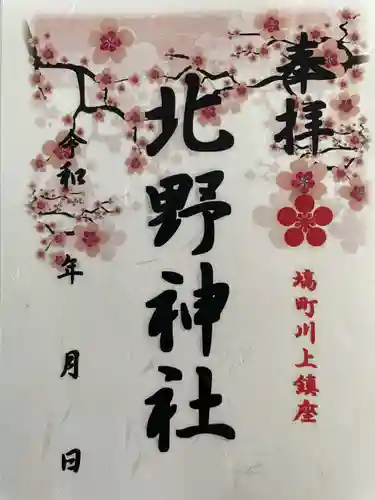 奉拝
塙町川上鎮座
北野神社
令和 一年 月 日